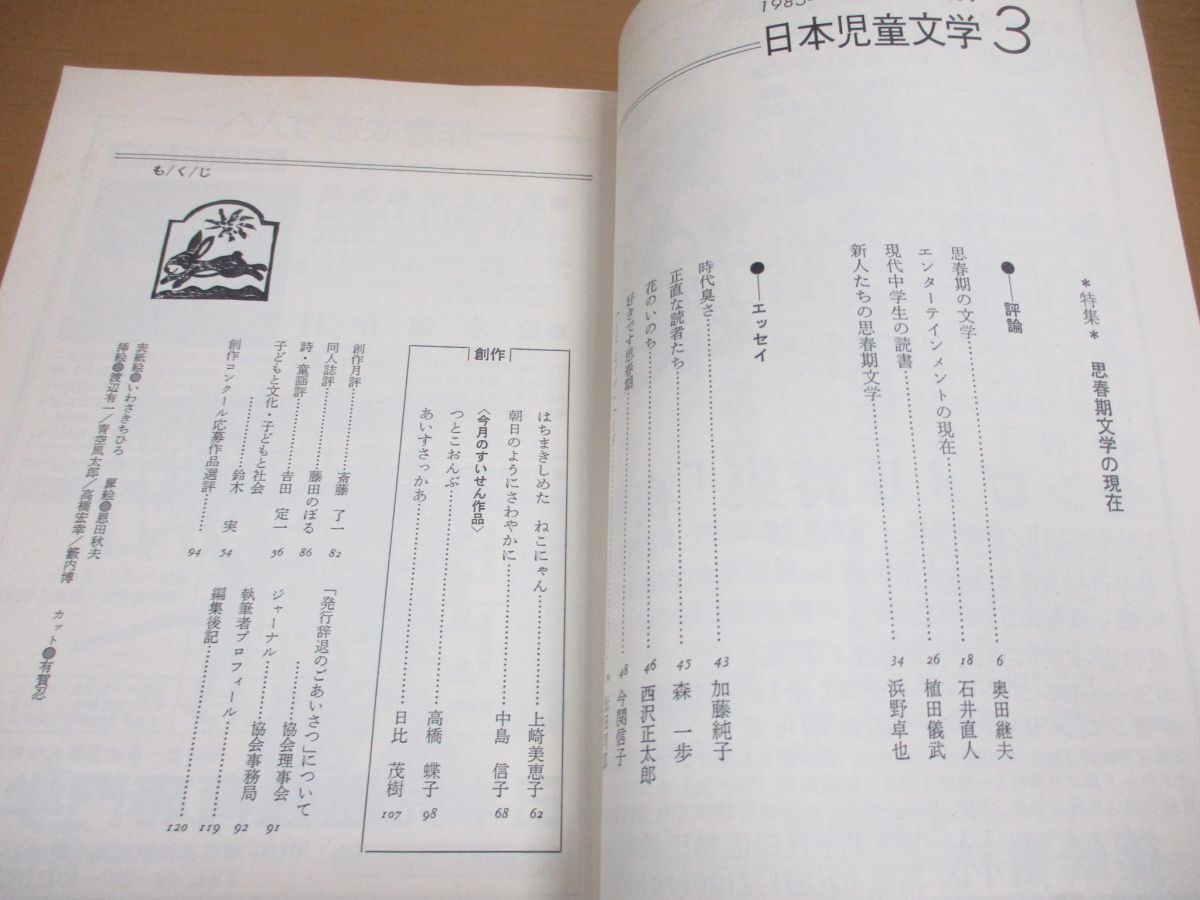 1985
日本児童文学 3
＊特集＊ 思春期文学の現在
●──評論
思春期の文学……………6 奥田継夫
エンターテインメントの現在……………18 石井直人
現代中学生の読書……………26 植田儀武
新人たちの思春期文学……………34 浜野卓也
●──エッセイ
時代臭さ……………43 加藤純子
正直な読者たち……………45 森 一歩
花のいのち……………46 西沢正太郎
好きです思春期……………48 今関信子
も/く/じ
創作
はちまきしめた ねこにゃん……………上崎美恵子 62
朝日のようにさわやかに……………中島 信子 68
〈今月のすいせん作品〉
つとこおんぶ……………高橋 蝶子 98
あいすさっかあ……………日比 茂樹 107
創作月評……………斎藤 了一 82
同人誌評……………藤田のぼる 86
詩・童謡評……………吉田 定一 56
子どもと文化・子どもと社会
……………鈴木 実 54
創作コンクール応募作品選評……………94
「発行辞退のごあいさつ」について
……………協会理事会 91
ジャーナル……………協会事務局 92
執筆者プロフィール……………119
編集後記……………120
表紙絵●いわさきちひろ 扉絵●恩田秋夫
挿絵●渡辺有一／青空風太郎／高橋宏幸／籔内博 カット●有賀忍